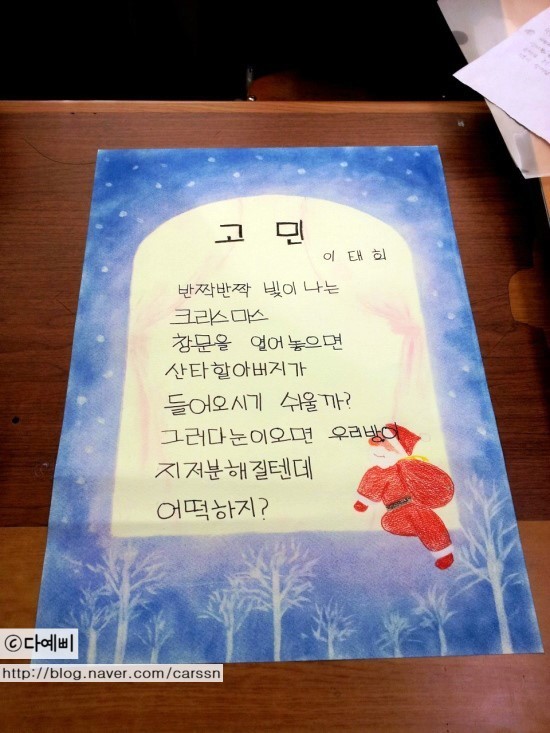 고 민
이 태 희
반짝반짝 빛이 나는
크리스마스
창문을 열어놓으면
산타할아버지가
들어오시기 쉬울까?
그러다눈이오면 우리방이
지저분해질텐데
어떡하지?
ⓒ다예삐
http://blog.naver.com/carssn